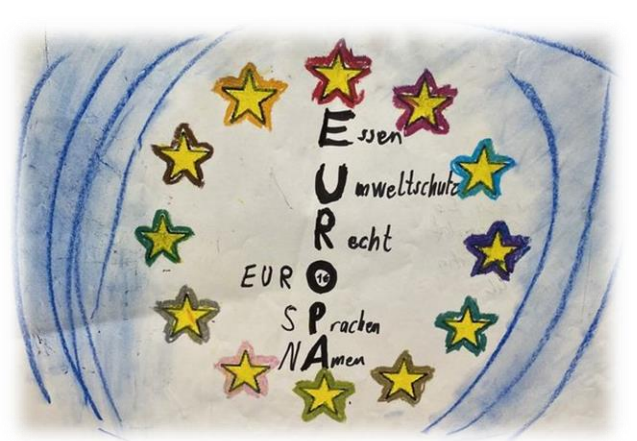 Essen
Umweltschutz
Recht
EURO
SPrachen
NAmen